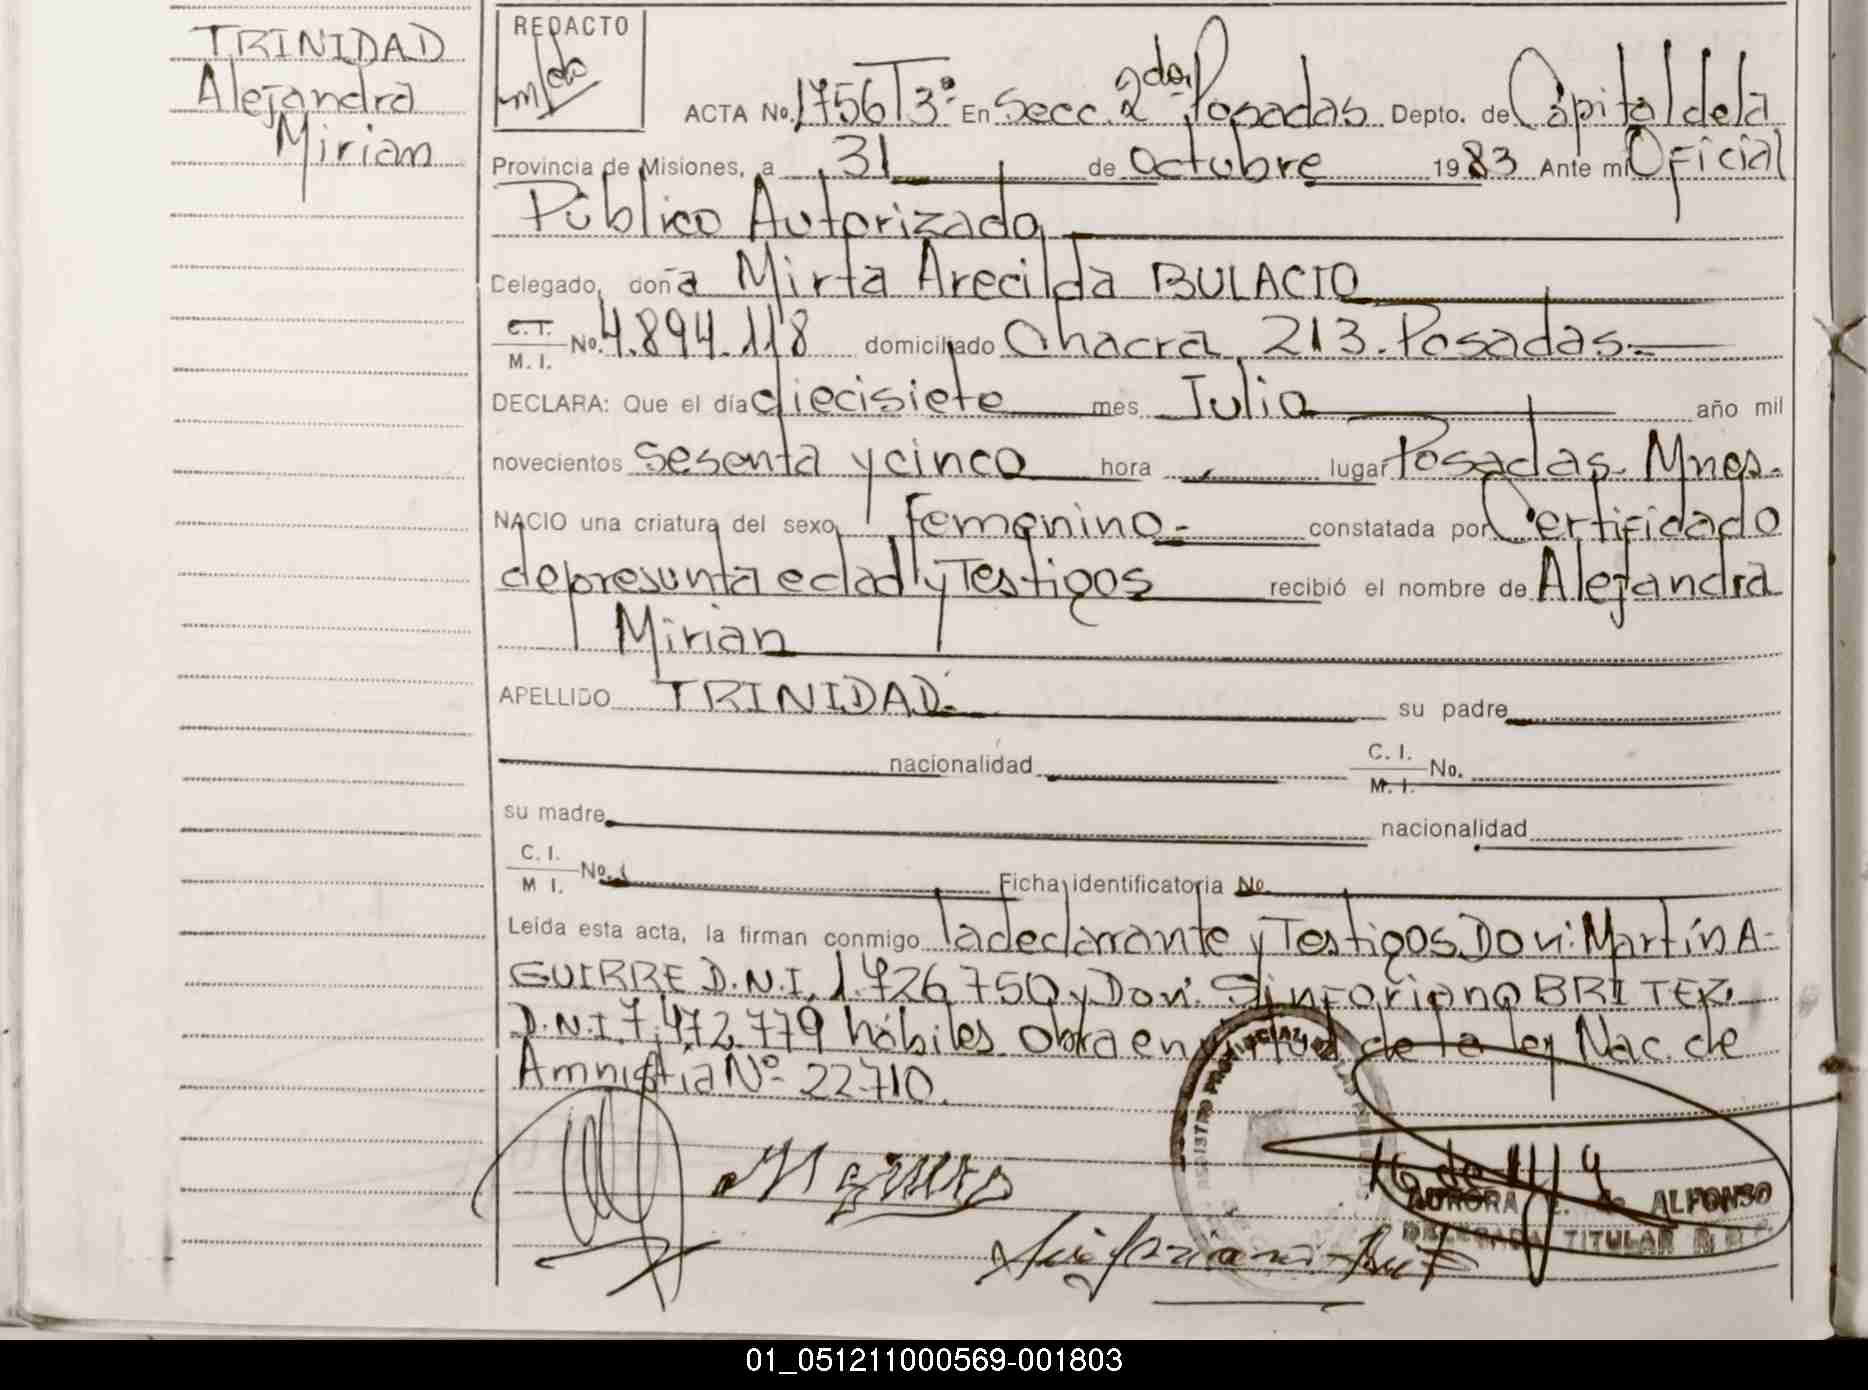 TRINIDAD
Alejandra
Mirian
REDACTO
ACTA No. 1756 T 3º En Secc. 2da. Posadas Depto. de Capital de la
Provincia de Misiones, a 31 de Octubre 1983 Ante mi Oficial
Público Autorizado
Delegado, doña Mirta Arecilda BULACIO
C.I. M.I. No. 4.894.118 domiciliado Chacra 213. Posadas.-
DECLARA: Que el día diecisiete mes Julio año mil
novecientos sesenta y cinco hora lugar Posadas. Mnes.
NACIO una criatura del sexo femenino.- constatada por Certificado
de presunta edad y Testigos recibió el nombre de Alejandra
Mirian
APELLIDO TRINIDAD.- su padre
nacionalidad C. I. M. I. No.
su madre nacionalidad
C. I. M I. No. Ficha identificatoria No
Leída esta acta, la firman conmigo la declarante y Testigos Don: Martín A-
GUIRRE D.N.I. 1.726.750 y Don: Sinforiano BRITEZ.
D.N.I. 7.472.779 hábiles. Obra en virtud de la ley Nac. de
Amnistía Nº 22710.
REGISTRO PROVINCIAL DE LAS
AURORA de ALFONSO
DELEGADA TITULAR
01_051211000569-001803